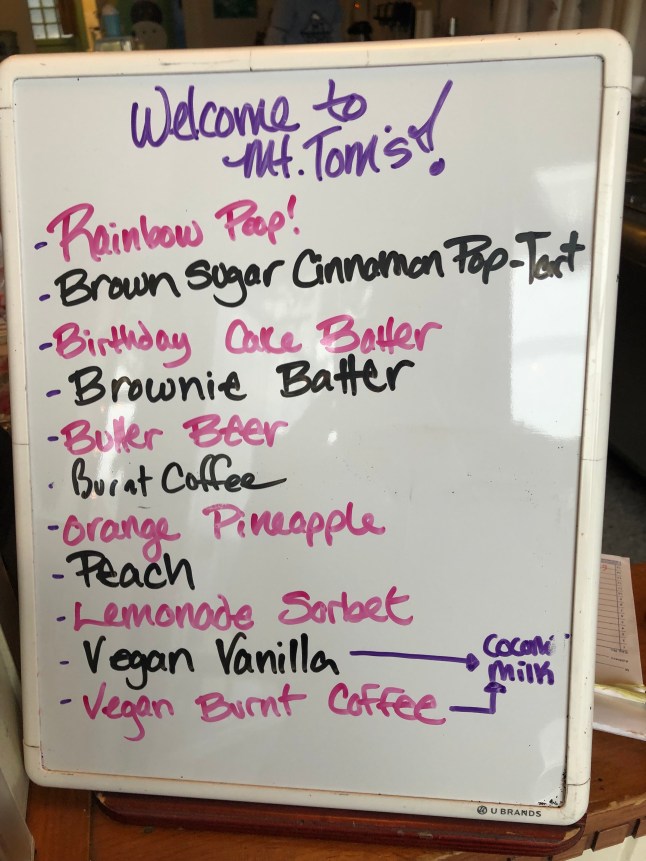 Welcome to
Mt. Tom's!
- Rainbow Poop!
- Brown Sugar Cinnamon Pop-Tart
- Birthday Cake Batter
- Brownie Batter
- Butter Beer
- Burnt Coffee
- Orange Pineapple
- Peach
- Lemonade Sorbet
- Vegan Vanilla
- Vegan Burnt Coffee
milk
U BRANDS